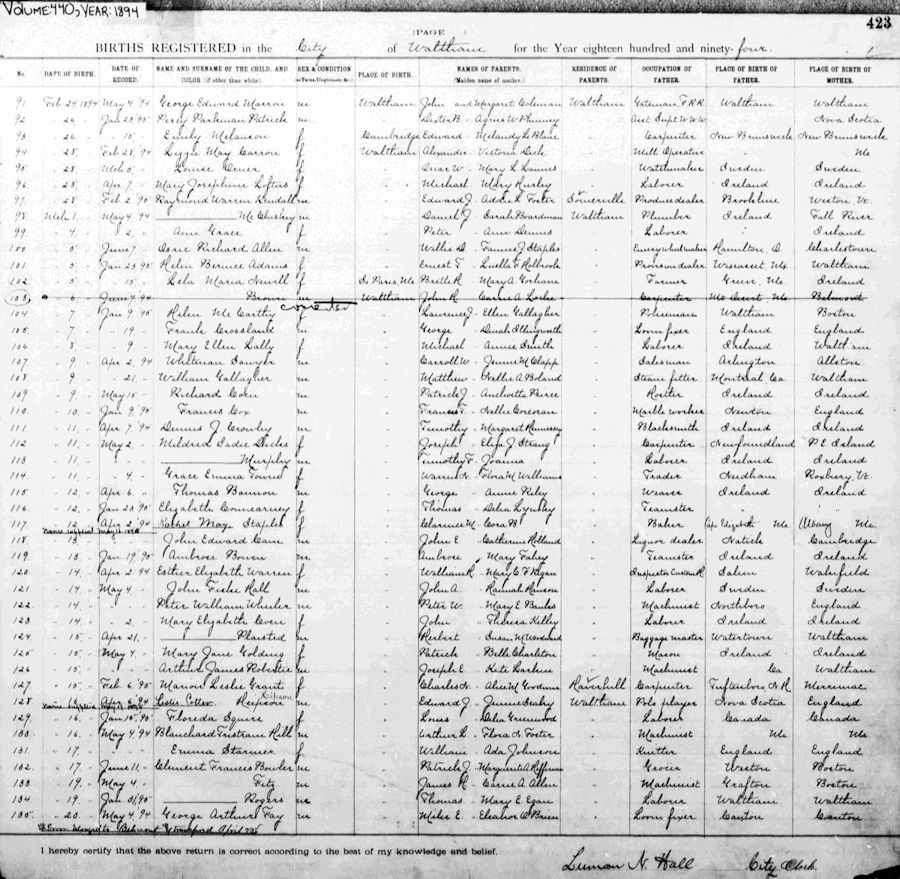 VOLUME: 440, YEAR: 1894
423
(PAGE )
BIRTHS REGISTERED in the City of Waltham for the Year eighteen hundred and ninety-four.
No. DATE OF BIRTH. DATE OF RECORD. NAME AND SURNAME OF THE CHILD, AND COLOR (if other than white). SEX & CONDITION PLACE OF BIRTH. NAMES OF PARENTS. (Maiden name of mother.) RESIDENCE OF PARENTS. OCCUPATION OF FATHER. PLACE OF BIRTH OF FATHER. PLACE OF BIRTH OF MOTHER.
91 Feb 24 1894 May 4 '94 George Edward Marron m Waltham John and Margaret Coleman Waltham Gateman F.R.R. Waltham Waltham
92 26 Jan 23 '95 Percy Parkman Patrick m Dexter B Agnes W Phinney Asst Supt W.W.W. Nova Scotia
93 26 15 Emily Melanson f Cambridge Edward Melandy Le Blanc Carpenter New Brunswick New Brunswick
94 28 Feb 28 '94 Lizzie May Carron f Waltham Alexander Victoria Mill Operative Me
95 28 Mch 5 Louise f Oscar W. Mary L Watchmaker Sweden Sweden
96 28 Apr 7 Mary Josephine Loftus f Michael Mary Hurley Laborer Ireland Ireland
97 28 Feb 2 '95 Raymond Warren Kendall m Edward J. Addie K Foster Somerville Produce dealer Brookline Weston Vt.
98 Mch 1 May 4 '94 McCluskey m Daniel J Sarah Boardman Waltham Plumber Ireland Fall River
99 4 2 Ann Grace f Peter Ann Dennis Laborer Ireland
100 5 June 7 Osric Richard Allen m Willis D. Fannie J Staples Emery wheel maker Hamilton O. Charlestown
101 5 Jan 23 95 Helen Bernice Adams f Ernest T. Luella F Holbrook Provision dealer Wiscasset, Me Waltham
102 5 15 Lela Maria Newell f So Paris Me Mary A Gorham Farmer Greene, Me Ireland
103 6 June 7 94 Brown m Waltham John H Carrie A Locke Carpenter Mt Desert Me Belmont
104 7 Jan 9 95 Helen McCarthy f Laurence J Ellen Gallagher Policeman Waltham Boston
105 7 19 Frank Crossland m George Dinah Illingworth Loom fixer England England
106 8 9 Mary Ellen Lally f Michael Annie Smith Laborer Ireland Waltham
107 9 Apr 2, 94 Whitman Sawyer m Carroll W. Jennie M Clapp Salesman Arlington Allston
108 9 21 William Gallagher m Matthew Nellie A Boland Steam fitter Montreal Ca Waltham
109 9 May 15 Richard Coen m Patrick J Hostler Ireland Ireland
110 10 Jan 9 '95 Francis Cox m Francis F. Nellie Corcoran Marble worker Newton England
111 11 Apr 7 '94 Dennis J Crowley m Timothy Margaret Blacksmith Ireland Ireland
112 11 May 2 Mildred Sadie f Joseph Eliza J Strang Carpenter Newfoundland P.E. Island
113 11 Murphy m Timothy F. Joanna Laborer Ireland Ireland
114 11 4 Grace Emma f Warren H Flora M Williams Trader Needham Roxbury, Vt.
115 12 Apr 6 Thomas Bannon m George Annie Riley Weaver Ireland Ireland
116 12 Jan 23 95 Elizabeth f Thomas Delia Teamster
117 12 Apr 2 '94 Rachel May Staples f Clarence M. Cora B Baker Cape Elizabeth Me Albany Me.
118 13 John Edward Cain m John E Catherine Holland Liquor dealer Natick Cambridge
119 13 Jan 19 '95 Ambrose Bowen m Ambrose Mary Foley Teamster Ireland Ireland
120 14 Apr 2 94 Esther Elizabeth Warren f William H. Mary C. F. Inspector Custom H. Salem Wakefield
121 14 May 4 John Fiske Hall m John A. Hannah Hanson Laborer Sweden Sweden
122 14 Peter William Wheeler m Peter W. Mary E Banks Machinist Northboro England
123 14 2 Mary Elizabeth Coen f John Theresa Kelly Laborer Ireland Ireland
124 15 Apr 21 Plaisted m Herbert Susan M Woodward Baggage master Watertown Waltham
125 15 May 4 Mary Jane Golding f Patrick Belle Charleton Mason Ireland Ireland
126 15 Arthur James Robestie m Joseph E. Kate Larkin Machinist Ca Waltham
127 15 Feb 6 '95 Marion Leslie Grant f Charles N. Alice M Goodwin Haverhill Carpenter Tuftonboro, N.H. Merrimac
128 '94 Leslie m Edward J. Jennie Waltham Polo player Nova Scotia England
129 16 Jan 15, 95 Florida Squire f Louis Delia Greenwood Laborer Canada Canada
130 16 May 4 '94 Blanchard Tristram Hill m Arthur L Flora N. Foster Machinist Me Me
131 17 Emma Starmer f William Ada Johnson Knitter England England
132 17 June 11 Clement Francis Bowler m Patrick J Marguerite A Heffernan Grocer Weston Boston
133 19 May 4 Fitz m James H Carrie A. Allen Machinist Grafton Boston
134 19 Jan 31/95 Rogers m Thomas Mary E. Egan Laborer Waltham Waltham
135 20 May 4, 94 George Arthur Fay m Miles E. Eleanor O'Brien Loom fixer Canton Canton
I hereby certify that the above return is correct according to the best of my knowledge and belief.
Luman N. Hall City Clerk.